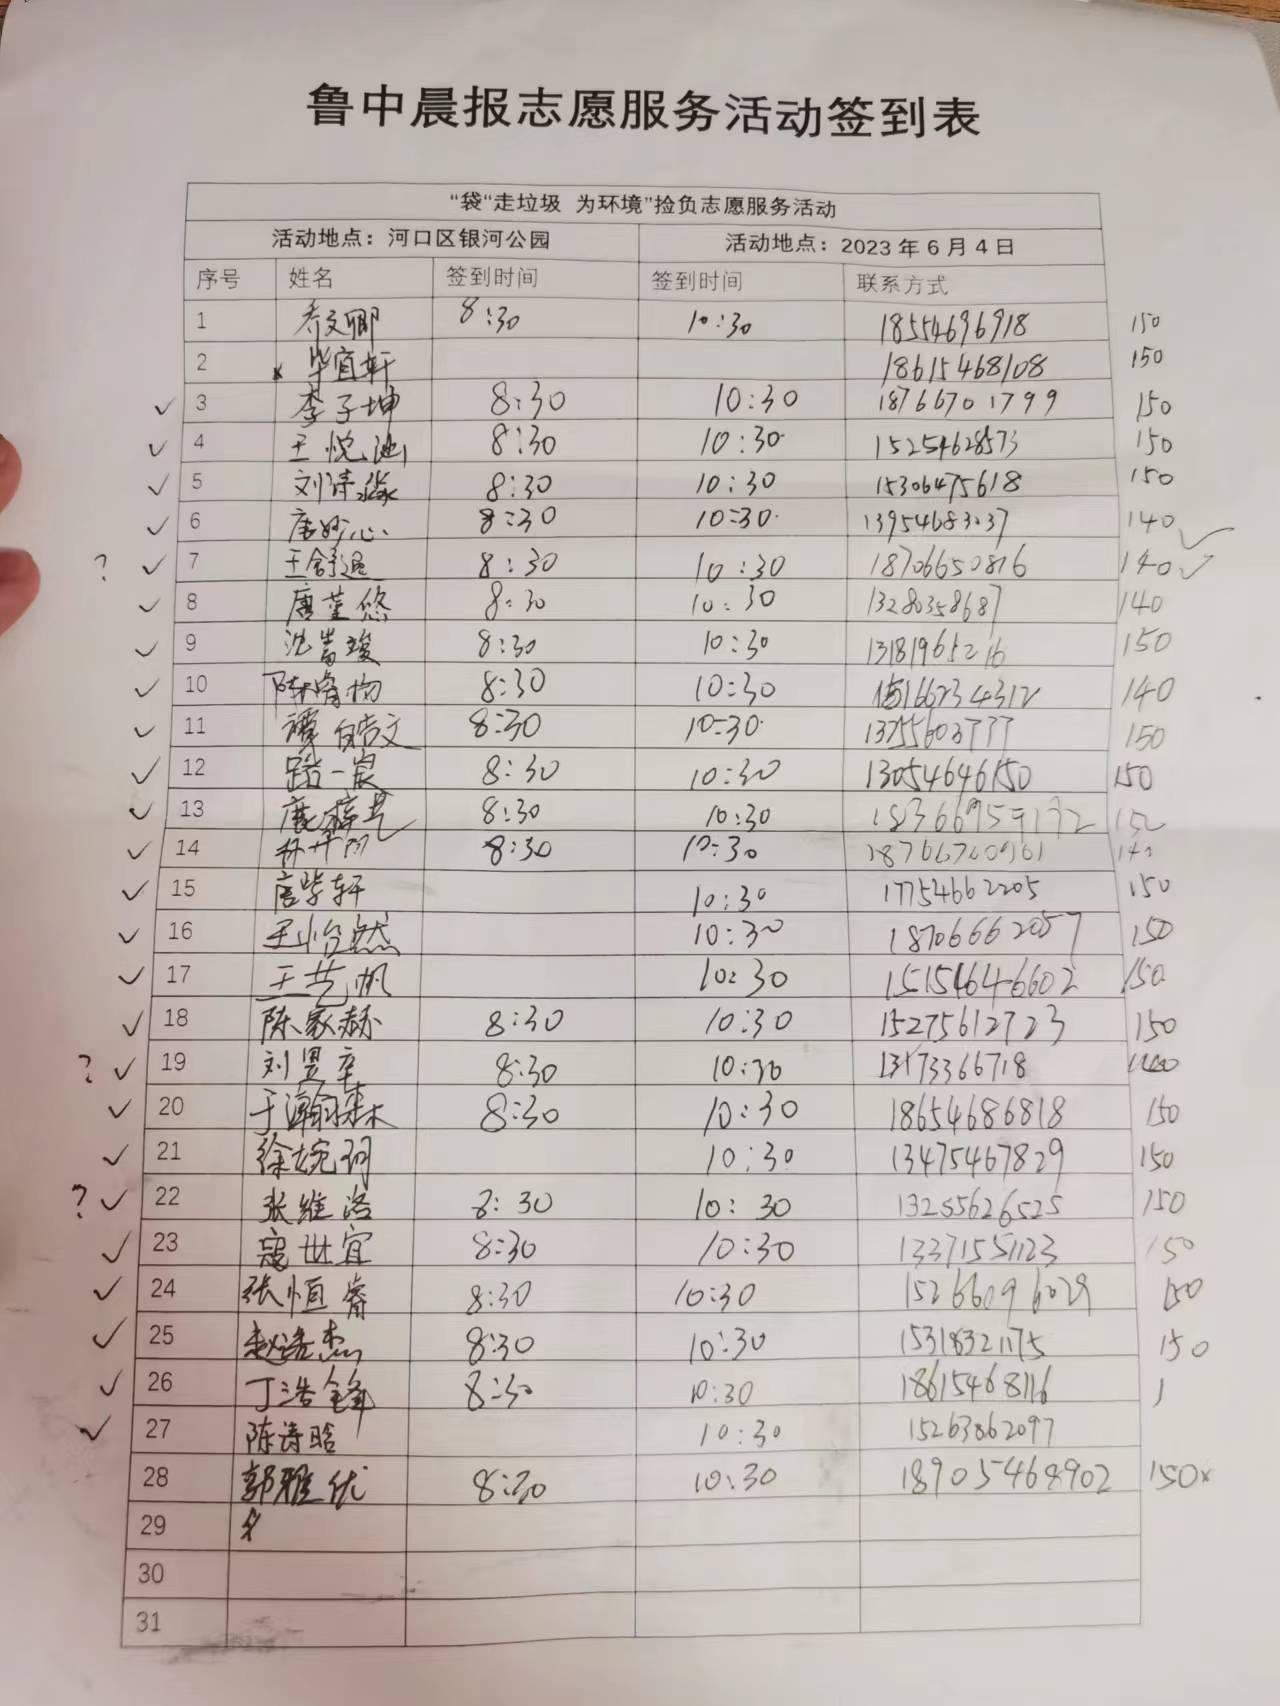 鲁中晨报志愿服务活动签到表
“袋“走垃圾 为环境”捡负志愿服务活动
活动地点：河口区银河公园 活动地点：2023年6月4日
序号 姓名 签到时间 签到时间 联系方式
1 乔文卿 8:30 10:30 18554696918 150
2 × 毕宜轩 18615468108 150
✓ 3 李子坤 8:30 10:30 18766701799 150
✓ 4 王悦 8:30 10:30 15254628573 150
✓ 5 刘诗淼 8:30 10:30 15306475618 150
✓ 6 唐妙心 8:30 10:30 13954683037 140 ✓
? ✓ 7 王舒 8:30 10:30 18706650816 140 ✓
✓ 8 唐堇悠 8:30 10:30 13280358687 140
✓ 9 沈嵩竣 8:30 10:30 13181965216 150
✓ 10 8:30 10:30 15166234312 140
✓ 11 谭皓文 8:30 10:30 13755603777 150
✓ 12 路一宸 8:30 10:30 13054646150 150
✓ 13 8:30 10:30 150
✓ 14 8:30 10:30 18766700961 140
✓ 15 唐紫轩 10:30 17754662205 150
✓ 16 王怡然 10:30 18706662057 150
✓ 17 王艺帆 10:30 15154646602 150
✓ 18 陈家赫 8:30 10:30 15275612723 150
? ✓ 19 刘昱辛 8:30 10:30 13173366718
✓ 20 于瀚森 8:30 10:30 18654686818 150
✓ 21 徐婉玥 10:30 13475467829 150
? ✓ 22 张维洛 8:30 10:30 13255626525 150
✓ 23 寇世宜 8:30 10:30 13371551123 150
✓ 24 张恒睿 8:30 10:30 15266096029 150
✓ 25 赵浩杰 8:30 10:30 15318321175 150
✓ 26 丁浩锋 8:30 10:30 18615468116 1
✓ 27 陈诗晗 10:30 15263862097
28 郭雅优 8:30 10:30 18905468902 150×
29
30
31